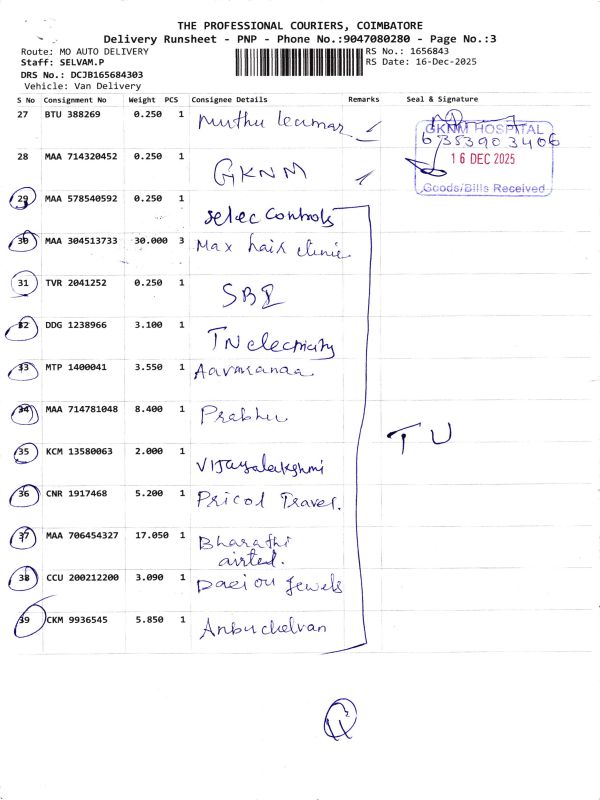 THE PROFESSIONAL COURIERS, COIMBATORE
Delivery Runsheet - PNP - Phone No.:9047080280 - Page No.:3
Route: MO AUTO DELIVERY RS No.: 1656843
Staff: SELVAM.P RS Date: 16-Dec-2025
DRS No.: DCJB165684303
Vehicle: Van Delivery
S No Consignment No Weight PCS Consignee Details Remarks Seal & Signature
27 BTU 388269 0.250 1 Muthu kumar
GKNM HOSPITAL
6353903406
16 DEC 2025
Goods/Bills Received
28 MAA 714320452 0.250 1 GKNM
29 MAA 578540592 0.250 1 Selec Controls
30 MAA 304513733 30.000 3 Max hair clinic
31 TVR 2041252 0.250 1 SBI
32 DDG 1238966 3.100 1 TN electricity
33 MTP 1400041 3.550 1
34 MAA 714781048 8.400 1 Prabhu
TU
35 KCM 13580063 2.000 1 Vijayalakshmi
36 CNR 1917468 5.200 1 Pricol Travel.
37 MAA 706454327 17.050 1 Bharathi
airtel.
38 CCU 200212200 3.090 1 Jewels
39 CKM 9936545 5.850 1 Anbuchelvan